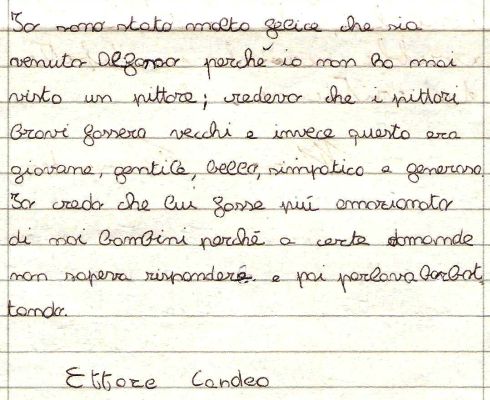 Io sono stato molto felice che sia
venuto Alfonso perché io non ho mai
visto un pittore; credevo che i pittori
bravi fossero vecchi e invece questo era
giovane, gentile, bello, simpatico e generoso.
Io credo che lui fosse più emozionato
di noi bambini perché a certe domande
non sapeva rispondere e poi parlava barbot-
tando.
Ettore Candeo